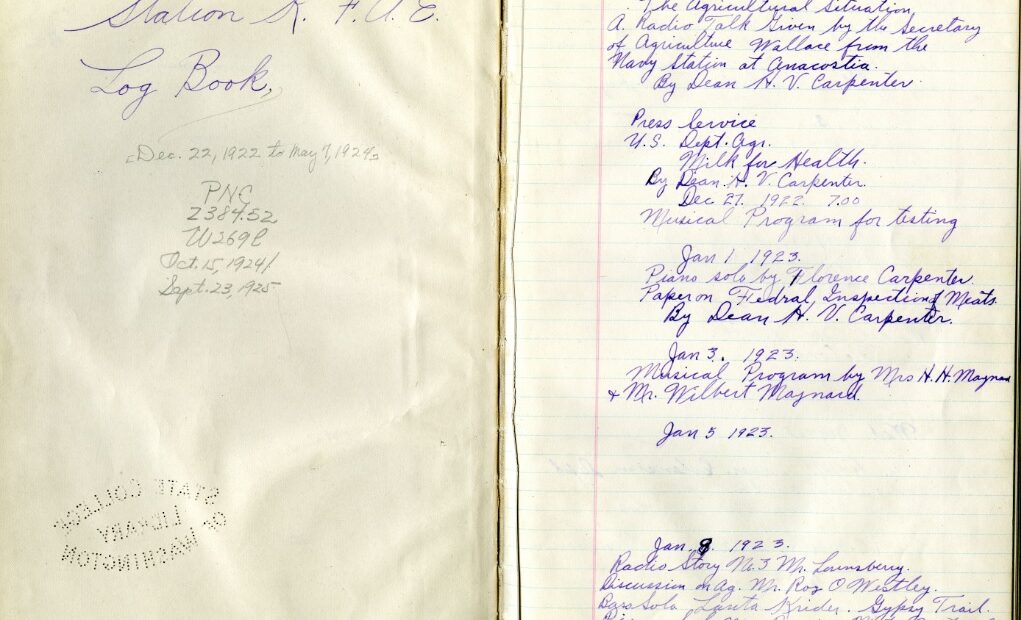 Station K. F. A. E.
Log Book.
[Dec. 22, 1922 to May 7, 1924]
PNC
Z384.52
W269l
Oct. 15, 1924/
Sept. 23, 1925
STATE COLLEGE
LIBRARY
OF WASHINGTON
The Agricultural Situation,
A. Radio Talk Given by the Secretary
of Agriculture Wallace from the
Navy Station at Anacostia.
By Dean H. V. Carpenter
Press Service
U.S. Dept. Agr.
Milk for Health.
By Dean. H. V. Carpenter.
Dec 27. 1922. 7.00
Musical Program for testing
Jan 1 1923.
Piano solo by Florence Carpenter.
Paper on Fedral, Inspection of Meats.
By Dean H. V. Carpenter.
Jan 3. 1923.
Musical Program by Mrs H. H. Maynard
& Mr. Wilbert Maynard.
Jan 5 1923.
Jan. 8 1923.
Radio Story No. 3 Mr. Lounsberry.
Discussion on Ag. Mr. Roy O Westley.
Solo, Krider. Gypsy Trail.